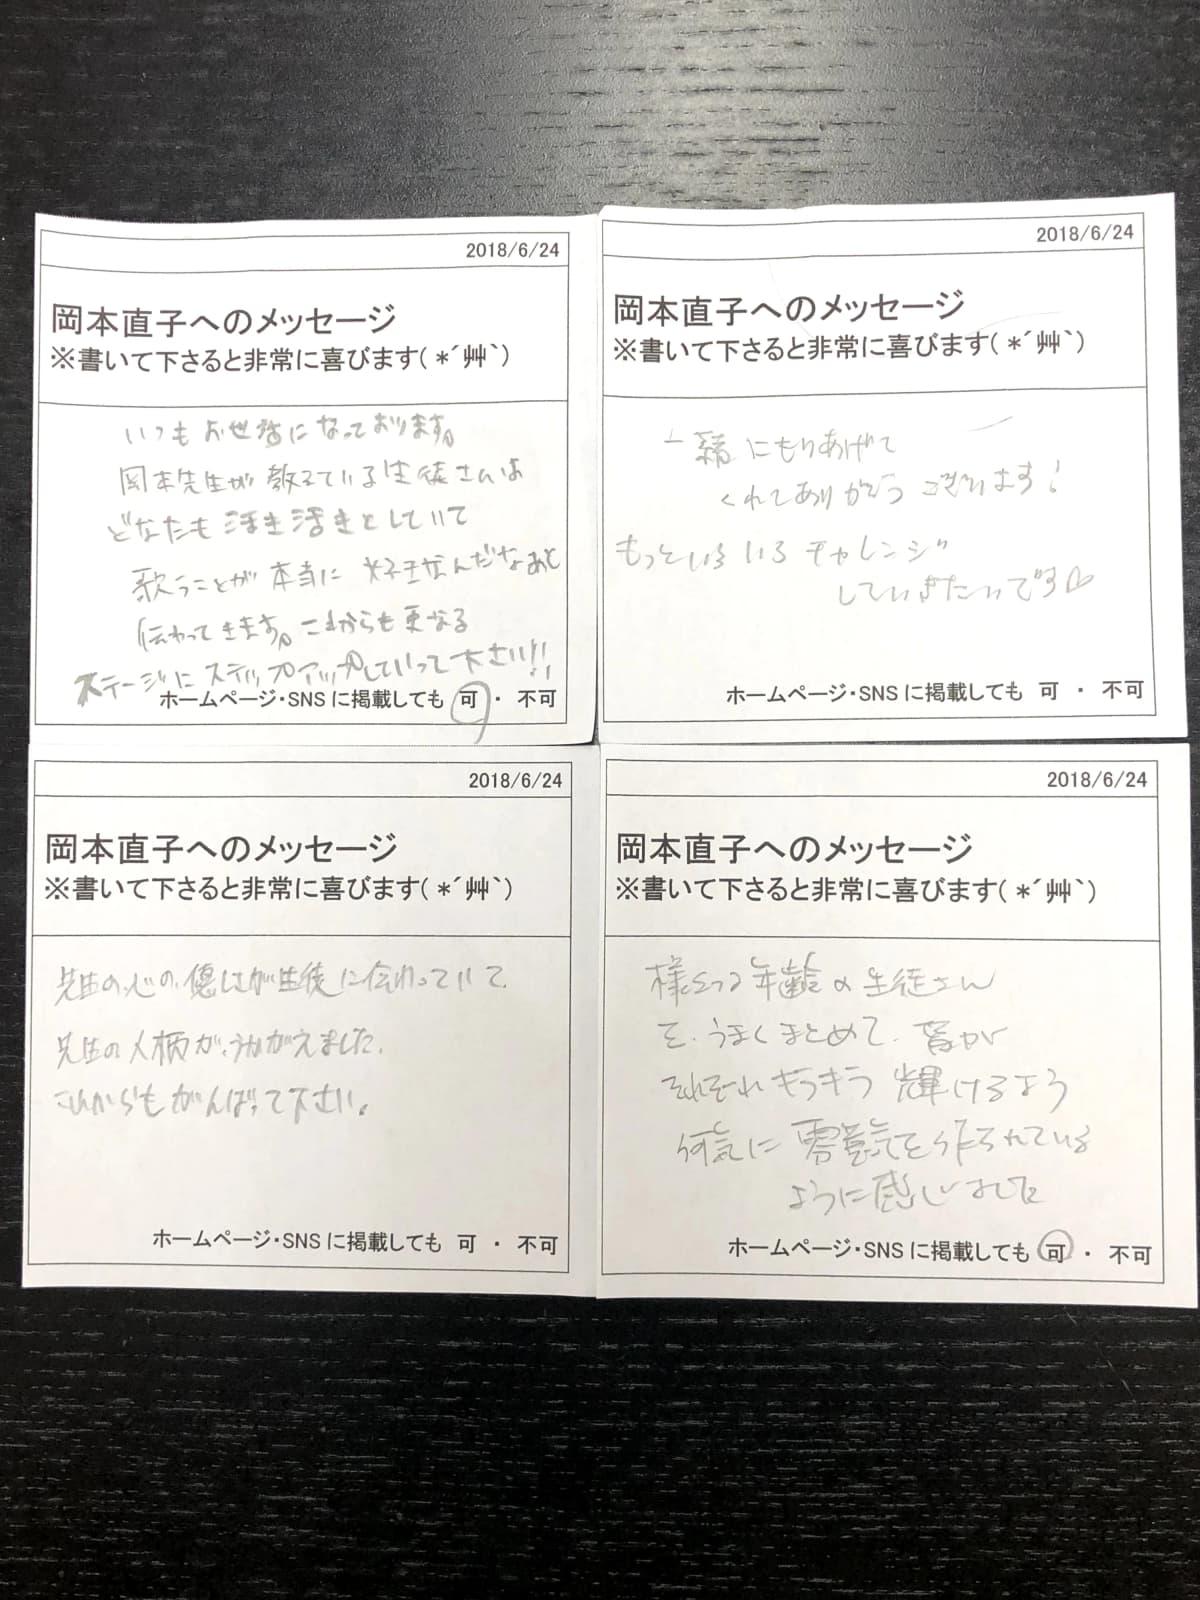 2018/6/24
岡本直子へのメッセージ
※書いて下さると非常に喜びます(*´艸`)
いつもお世話になっております。
岡本先生が教えている生徒さんは
どなたも活き活きとしていて
歌うことが本当に大好きなんだなあと
伝わってきます。これからも更なる
ステージにステップアップしていって下さい!!
ホームページ・SNSに掲載しても 可 ・ 不可
2018/6/24
岡本直子へのメッセージ
※書いて下さると非常に喜びます(*´艸`)
一緒にもりあげて
くれてありがとうございます!
もっといろいろチャレンジ
していきたいです♡
ホームページ・SNSに掲載しても 可 ・ 不可
2018/6/24
岡本直子へのメッセージ
※書いて下さると非常に喜びます(*´艸`)
先生の心の優しさが生徒に伝わっていて、
先生の人柄が、うかがえました。
これからもがんばって下さい。
ホームページ・SNSに掲載しても 可 ・ 不可
2018/6/24
岡本直子へのメッセージ
※書いて下さると非常に喜びます(*´艸`)
様々な年齢の生徒さん
を、うまくまとめて、皆が
それぞれキラキラ輝けるよう
何気に雰囲気を作られている
ように感じました
ホームページ・SNSに掲載しても 可 ・ 不可